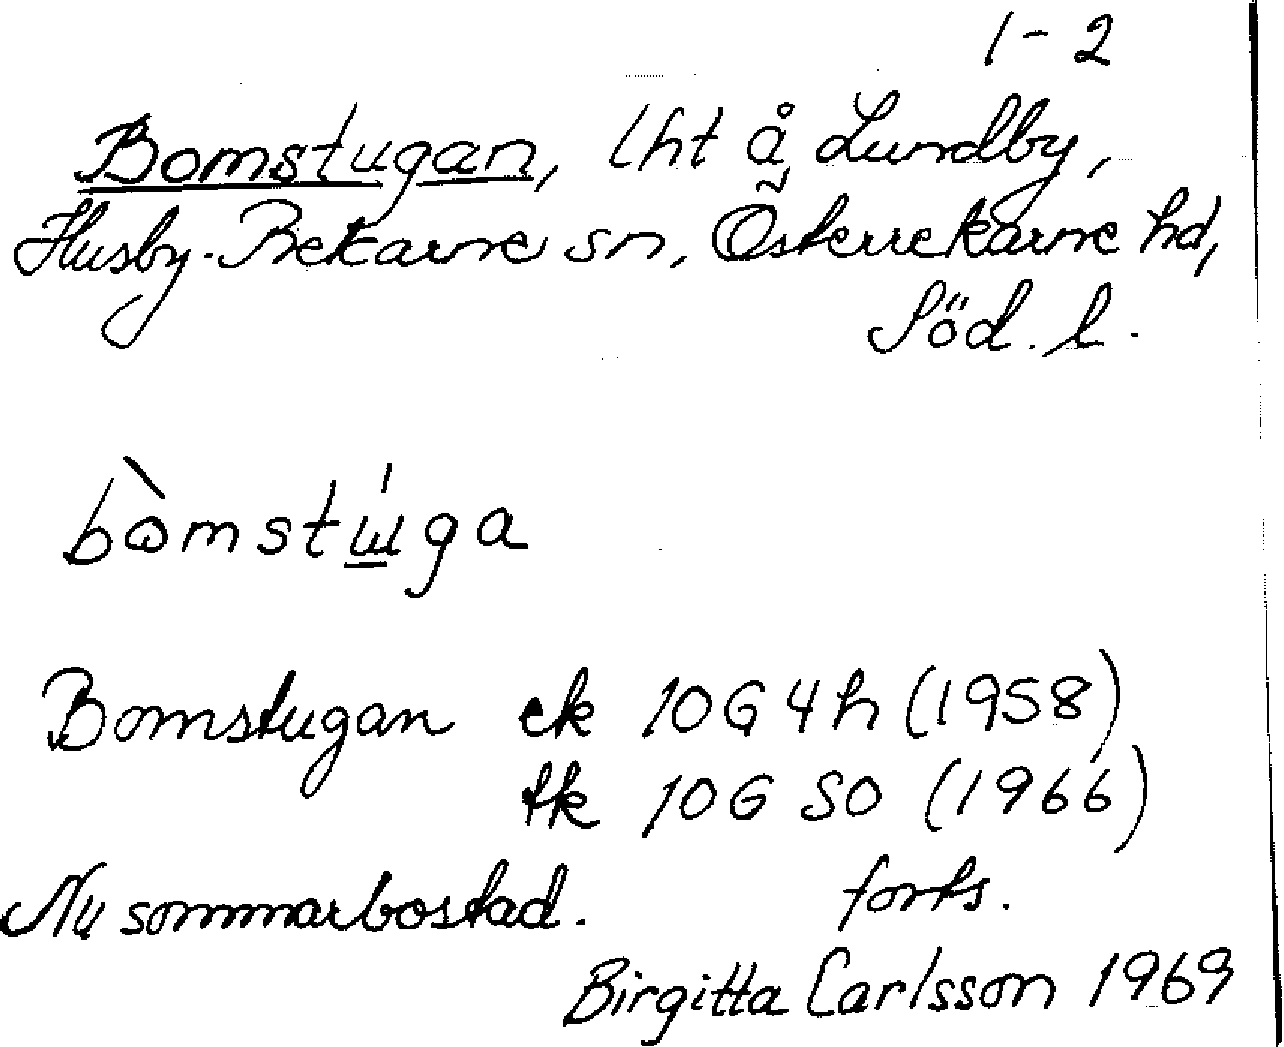 1-2
Bomstugan, lht å Lundby,
Husby-Rekarne sn, Österrekarne hd,
Söd. l.
bòmstú̲ga
Bomstugan ek 10G 4h (1958)
tk 10G SO (1966)
Nu sommarbostad. forts.
Birgitta Carlsson 1969